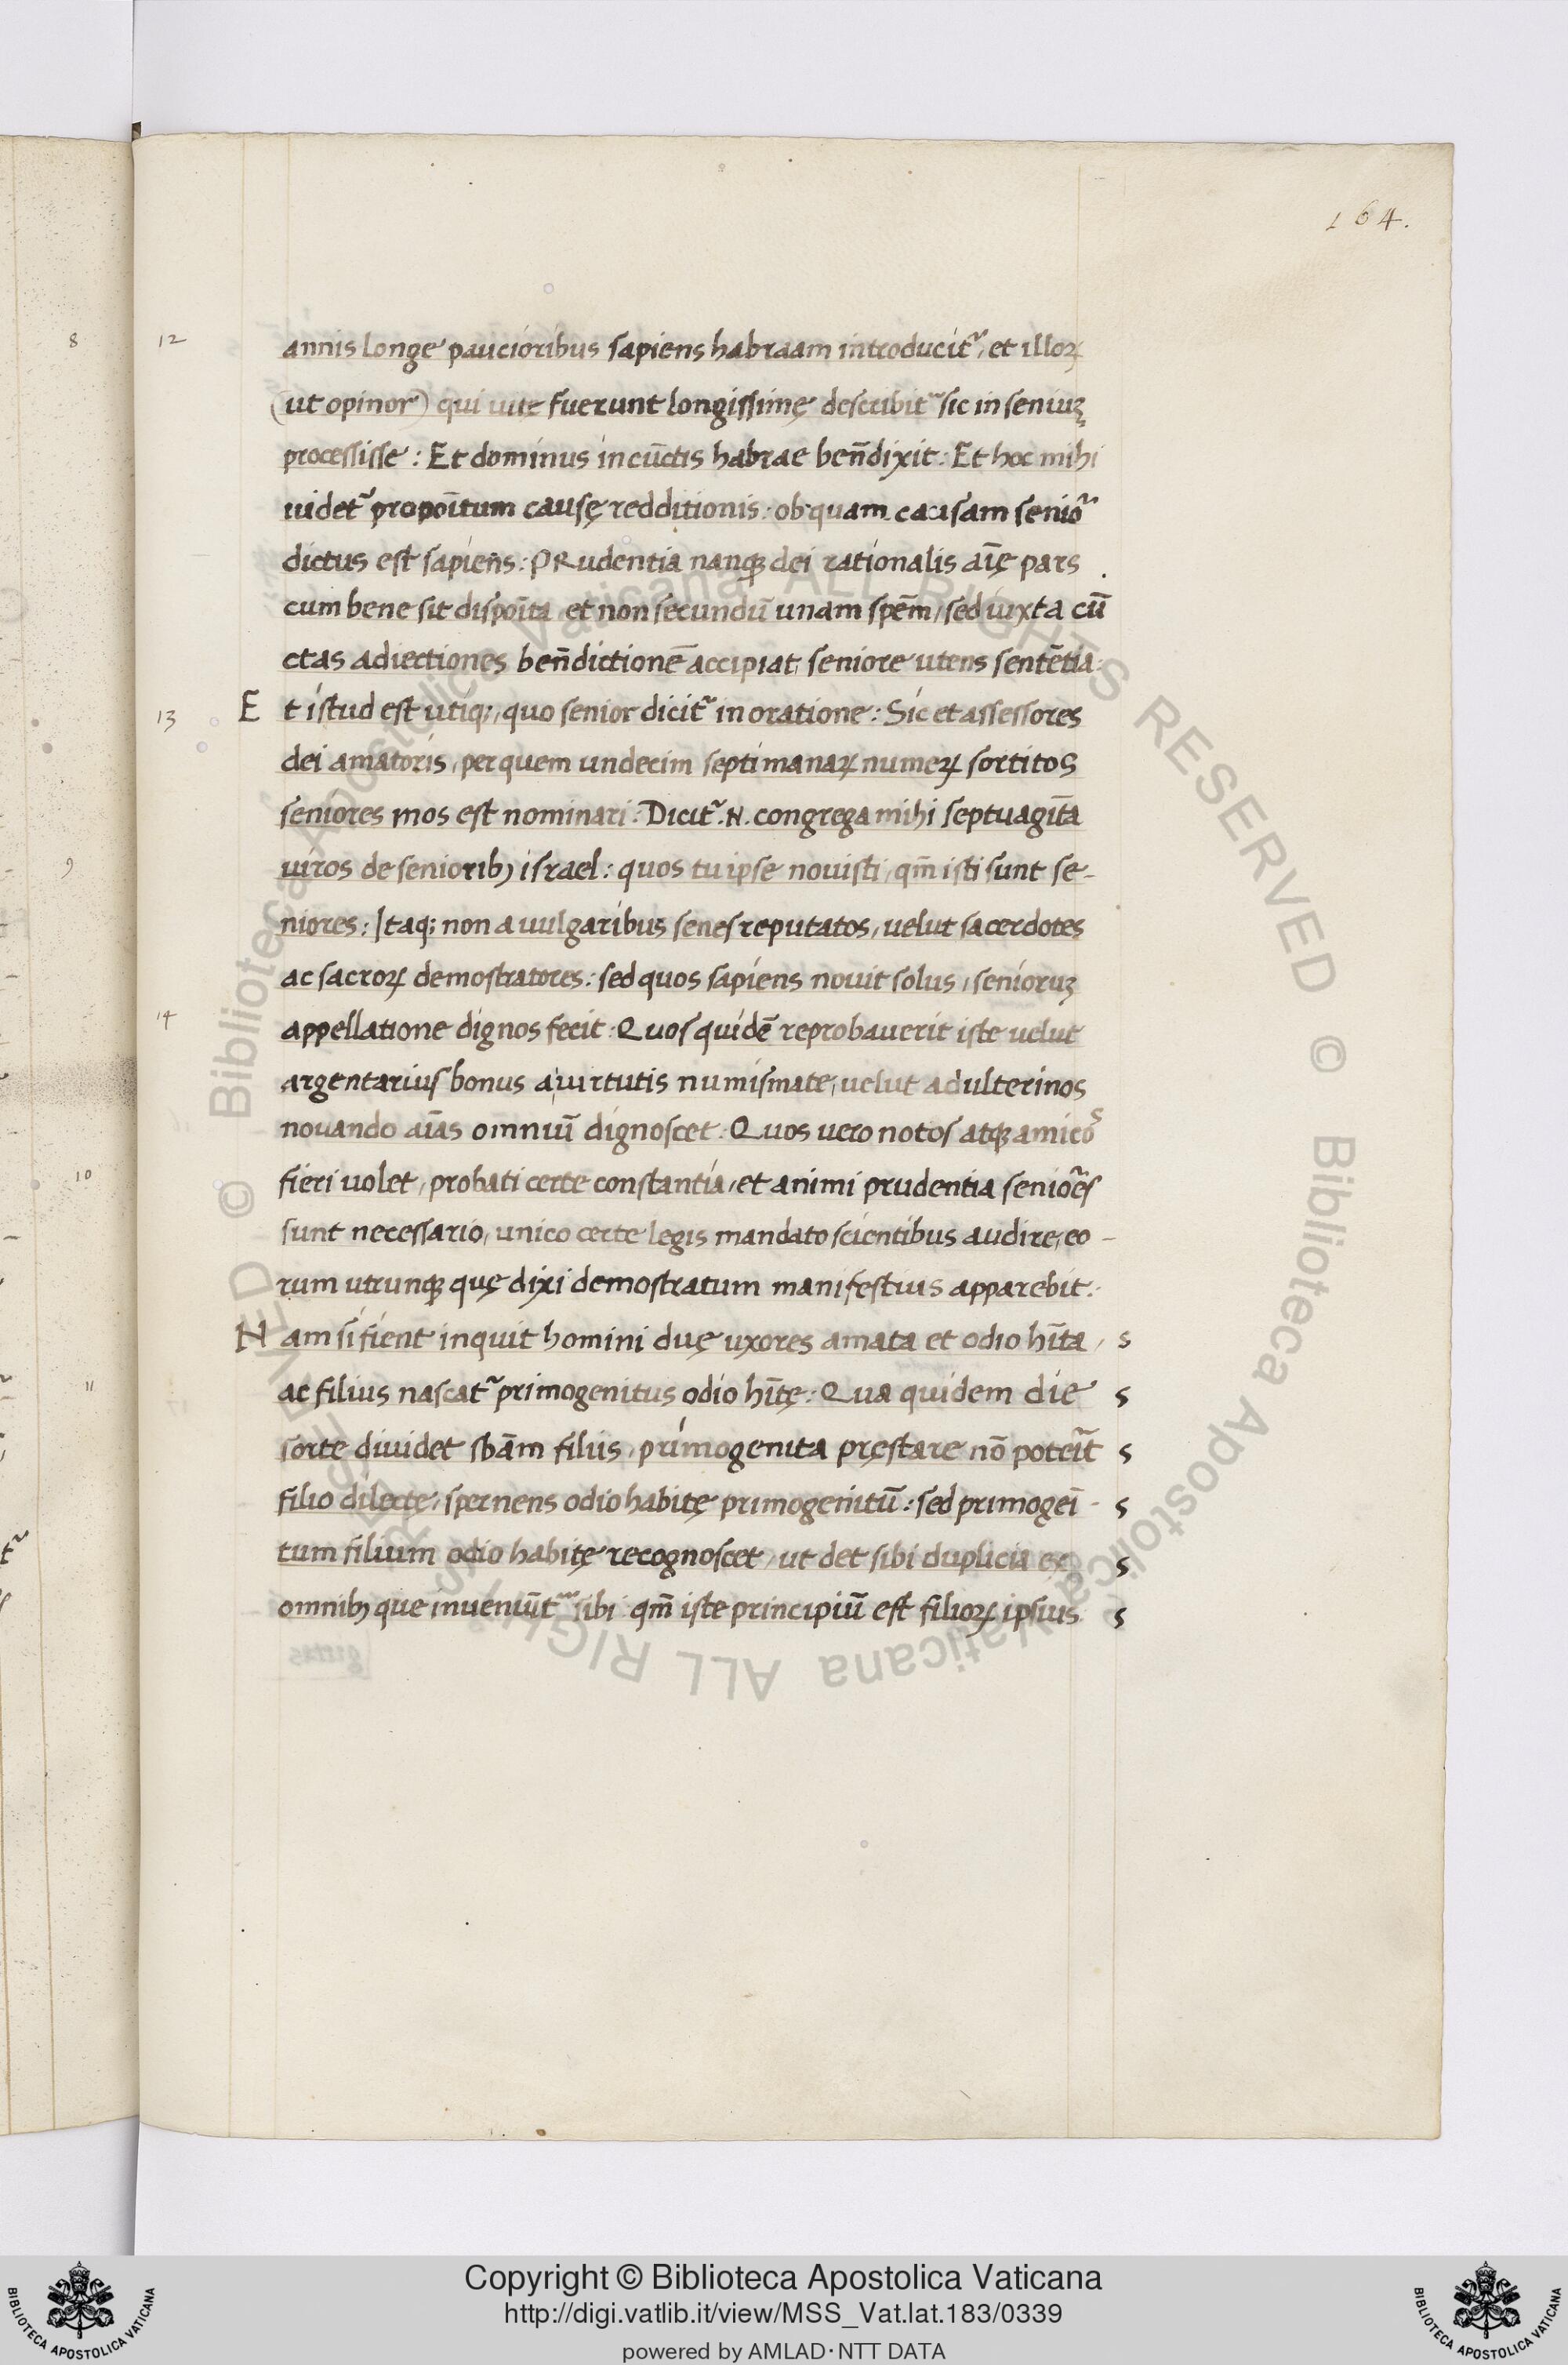 164.
8
9
10
11
12
annis longe paucioribus sapiens habraam introducit᷑, et illoꝝ
(ut opinor) qui uite fuerunt longissimę describit᷑ sic in seniuꝫ
processisse: Et dominus in cūctis habrae ben̄dixit: Et hoc mihi
uidet᷑ propoītum causę redditionis: ob quam causam senio᷑
dictus est sapiens: PRudentia nanqꝫ dei rationalis aīę pars
cum bene sit dispoīta, et non secundū unam spēm, sed iuxta cū
ctas adiectiones ben̄dictionē accipiat, seniore utens sentētia:
13
Et istud est utiqꝫ, quo senior dicit᷑ in oratione: Sic et assessores
dei amatoris, per quem undecim septimanaꝝ numeꝝ sortitos
seniores mos est nominari: Dicit᷑ .N. congrega mihi septuagīta
uiros de senioribꝫ israel: quos tu ipse nouisti, qm̄ isti sunt se-
niores: Itaqꝫ non a uulgaribus senes reputatos, uelut sacerdotes
ac sacroꝝ demostratores: sed quos sapiens nouit solus, senioruꝫ
14
appellatione dignos fecit: Quos quidē reprobauerit iste uelut
argentarius bonus a uirtutis numismate, uelut adulterinos
nouando aīas omniū dignoscet: Quos uero notos atqꝫ amicoˢ
fieri uolet, probati certe constantia, et animi prudentia senio᷑es
sunt necessario, unico certe legis mandato scientibus audire, eo-
rum utrunqꝫ quę dixi demostratum manifestius apparebit:
Nam si fient inquit homini duę uxores amata et odio hīta, s
ac filius nascat᷑ primogenitus odio hītę: Qua quidem die s
sorte diuidet sbām filiis, primogenita pręstare nō poteīt s
filio dilectę, spernens odio habitę primogenitū: sed primogeī- s
tum filium odio habitę recognoscet, ut det sibi duplicia ex s
omnibꝫ que inueniūt᷑ sibi qm̄ iste principiū est filioꝝ ipsius s
© Biblioteca Apostolica Vaticana ALL RIGHTS RESERVED © Biblioteca Apostolica Vaticana ALL RIGHTS RESERVED
Copyright © Biblioteca Apostolica Vaticana
http://digi.vatlib.it/view/MSS_Vat.lat.183/0339
powered by AMLAD·NTT DATA
BIBLIOTECA APOSTOLICA VATICANA
BIBLIOTECA APOSTOLICA VATICANA